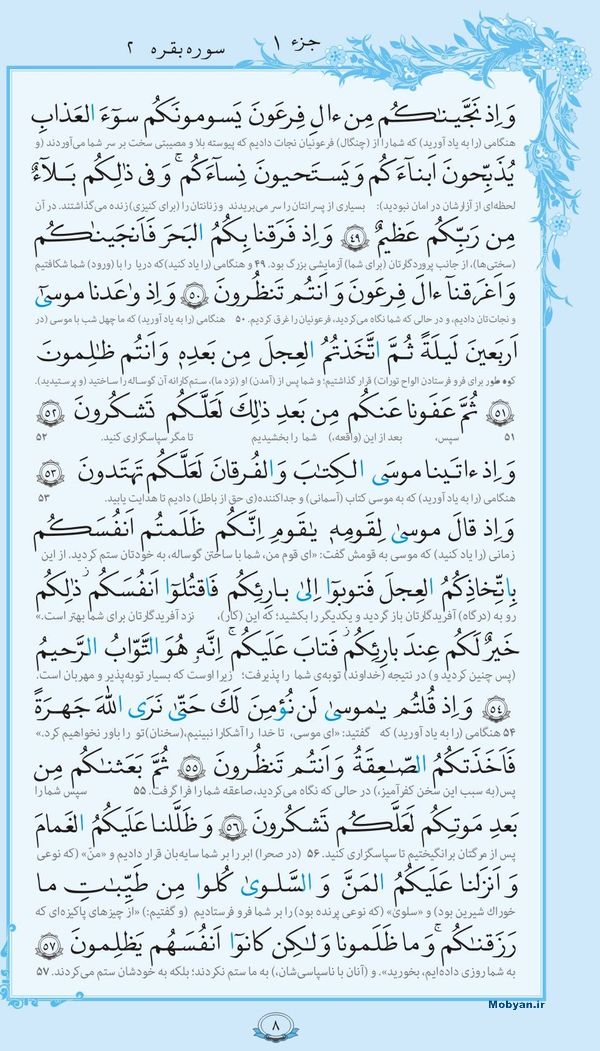 جزء ۱
سوره بقره ۲
وَ اِذ نَجَّیناکُم مِن ءالِ فِرعَونَ یَسومونَکُم سوءَ العَذابِ
هنگامی (را به یاد آورید) که شما را از (چنگال) فرعونیان نجات دادیم که پیوسته بلا و مصیبتی سخت بر سر شما می‌آوردند (و
یُذَبِّحونَ اَبناءَکُم وَ یَستَحیونَ نِساءَکُم ۚ وَ فی ذٰلِکُم بَلاءٌ
لحظه‌ای از آزارشان در امان نبودید): بسیاری از پسرانتان را سر می‌بریدند و زنانتان را (برای کنیزی) زنده می‌گذاشتند. در آن
مِن رَبِّکُم عَظیمٌ ﴿۴۹﴾ وَ اِذ فَرَقنا بِکُمُ البَحرَ فَاَنجَیناکُم
(سختی‌ها)، از جانب پروردگارتان (برای شما) آزمایشی بزرگ بود. ۴۹ و هنگامی (را یاد کنید) که دریا را با (ورود) شما شکافتیم
وَ اَغرَقنا ءالَ فِرعَونَ وَ اَنتُم تَنظُرونَ ﴿۵۰﴾ وَ اِذ واعَدنا موسیٰ
و نجات‌تان دادیم، و در حالی که شما نگاه می‌کردید، فرعونیان را غرق کردیم. ۵۰ هنگامی (را به یاد آورید) که ما چهل شب با موسی (در
اَربَعینَ لَیلَةً ثُمَّ اتَّخَذتُمُ العِجلَ مِن بَعدِهٖ وَ اَنتُم ظالِمونَ
کوه طور برای فرو فرستادن الواح تورات) قرار گذاشتیم؛ و شما پس از (آمدن) او (نزد ما)، ستم‌کارانه آن گوساله را ساختید (و پرستیدید).
﴿۵۱﴾ ثُمَّ عَفَونا عَنکُم مِن بَعدِ ذٰلِکَ لَعَلَّکُم تَشکُرونَ ﴿۵۲﴾
۵۱ سپس، بعد از این (واقعه)، شما را بخشیدیم تا مگر سپاسگزاری کنید. ۵۲
وَ اِذ ءاتَینا موسَی الکِتٰبَ وَ الفُرقانَ لَعَلَّکُم تَهتَدونَ ﴿۵۳﴾
هنگامی (را به یاد آورید) که به موسی کتاب (آسمانی) و جداکننده(ی حق از باطل) دادیم تا هدایت یابید. ۵۳
وَ اِذ قالَ موسیٰ لِقَومِهٖ یٰقَومِ اِنَّکُم ظَلَمتُم اَنفُسَکُم
زمانی (را یاد کنید) که موسی به قومش گفت: «ای قوم من، شما با ساختن گوساله، به خودتان ستم کردید. از این
بِاتِّخاذِکُمُ العِجلَ فَتوبوا اِلیٰ بارِئِکُم فَاقتُلوا اَنفُسَکُم ذٰلِکُم
رو به (درگاه) آفریدگارتان باز گردید و یکدیگر را بکشید؛ که این (کار)، نزد آفریدگارتان برای شما بهتر است.»
خَیرٌ لَکُم عِندَ بارِئِکُم فَتابَ عَلَیکُم ۚ اِنَّهٗ هُوَ التَّوّابُ الرَّحیمُ
(پس چنین کردید و) در نتیجه (خداوند) توبه‌ی شما را پذیرفت؛ زیرا اوست که بسیار توبه‌پذیر و مهربان است.
﴿۵۴﴾ وَ اِذ قُلتُم یٰموسیٰ لَن نُؤمِنَ لَکَ حَتّیٰ نَرَی اللّٰهَ جَهرَةً
۵۴ هنگامی (را به یاد آورید) که گفتید: «ای موسی، تا خدا را آشکارا نبینیم، (سخنان) تو را باور نخواهیم کرد.»
فَاَخَذَتکُمُ الصّاعِقَةُ وَ اَنتُم تَنظُرونَ ﴿۵۵﴾ ثُمَّ بَعَثناکُم مِن
پس (به سبب این سخن کفرآمیز)، در حالی که نگاه می‌کردید، صاعقه شما را فرا گرفت. ۵۵ سپس شما را
بَعدِ مَوتِکُم لَعَلَّکُم تَشکُرونَ ﴿۵۶﴾ وَ ظَلَّلنا عَلَیکُمُ الغَمامَ
پس از مرگتان برانگیختیم تا سپاسگزاری کنید. ۵۶ (در صحرا) ابر را بر شما سایه‌بان قرار دادیم و «منّ» (که نوعی
وَ اَنزَلنا عَلَیکُمُ المَنَّ وَ السَّلویٰ کُلوا مِن طَیِّبٰتِ ما
خوراک شیرین بود) و «سلوی» (که نوعی پرنده بود) را بر شما فرو فرستادیم (و گفتیم:) «از چیزهای پاکیزه‌ای که
رَزَقناکُم ۚ وَ ما ظَلَمونا وَ لٰکِن کانوا اَنفُسَهُم یَظلِمونَ ﴿۵۷﴾
به شما روزی داده‌ایم، بخورید». و (آنان با ناسپاسی‌شان،) به ما ستم نکردند؛ بلکه به خودشان ستم می‌کردند. ۵۷
Mobyan.ir
۸